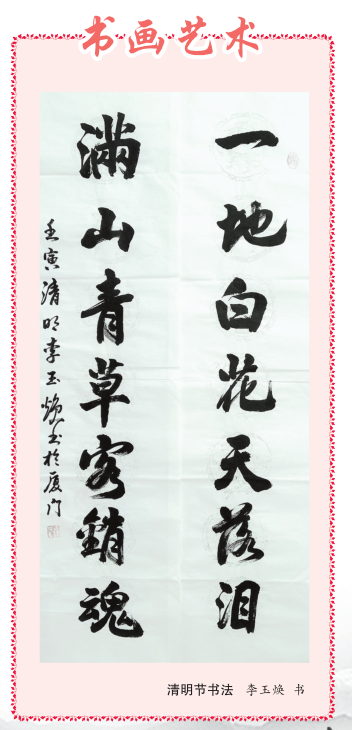 书画艺术
一地白花天落泪
满山青草客销魂
壬寅清明李玉焕书于厦门
清明节书法 李玉焕 书